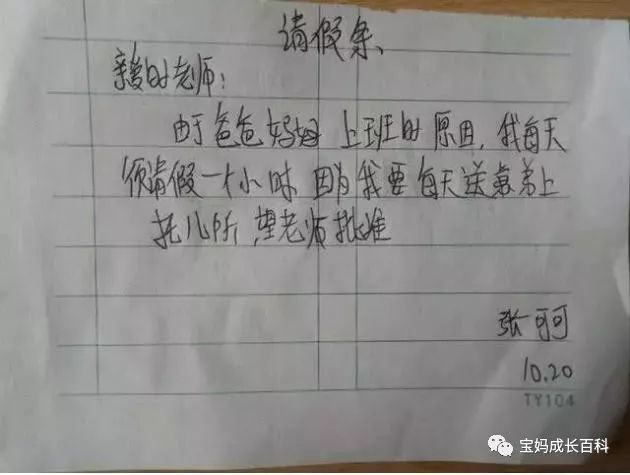 请假条、
亲爱的老师:
由于爸爸妈妈上班的原因,我每天
须请假一个小时 因为我要每天送弟弟上
托儿所,望老师批准
张可可
10.20
TY104
宝妈成长百科